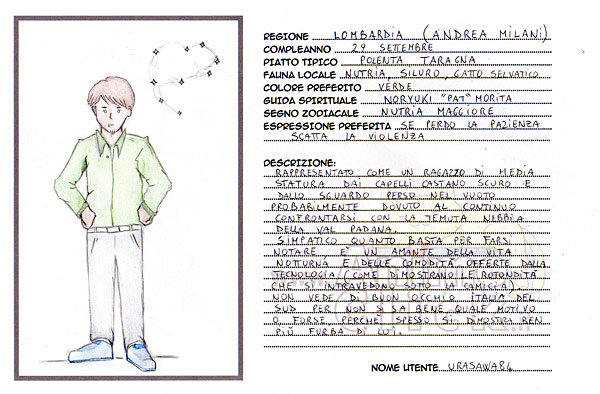 REGIONE LOMBARDIA (ANDREA MILANI)
COMPLEANNO 29 SETTEMBRE
PIATTO TIPICO POLENTA TARAGNA
FAUNA LOCALE NUTRIA, SILURO, GATTO SELVATICO
COLORE PREFERITO VERDE
GUIDA SPIRITUALE NORYUKI "PAT" MORITA
SEGNO ZODIACALE NUTRIA MAGGIORE
ESPRESSIONE PREFERITA SE PERDO LA PAZIENZA
SCATTA LA VIOLENZA
DESCRIZIONE:
RAPPRESENTATO COME UN RAGAZZO DI MEDIA
STATURA DAI CAPELLI CASTANO SCURO E
DALLO SGUARDO PERSO NEL VUOTO
PROBABILMENTE DOVUTO AL CONTINUO
CONFRONTARSI CON LA TEMUTA NEBBIA
DELLA VAL PADANA.
SIMPATICO QUANTO BASTA PER FARSI
NOTARE E' UN AMANTE DELLA VITA
NOTTURNA E DELLE COMODITÀ OFFERTE DALLA
TECNOLOGIA (COME DIMOSTRANO LE ROTONDITÀ
CHE SI INTRAVEDONO SOTTO LA CAMICIA).
NON VEDE DI BUON OCCHIO ITALIA DEL
SUD PER NON SI SA BENE QUALE MOTIVO
O FORSE PERCHE' SPESSO SI DIMOSTRA BEN
PIÙ FURBA DI LUI.
NOME UTENTE URASAWA84